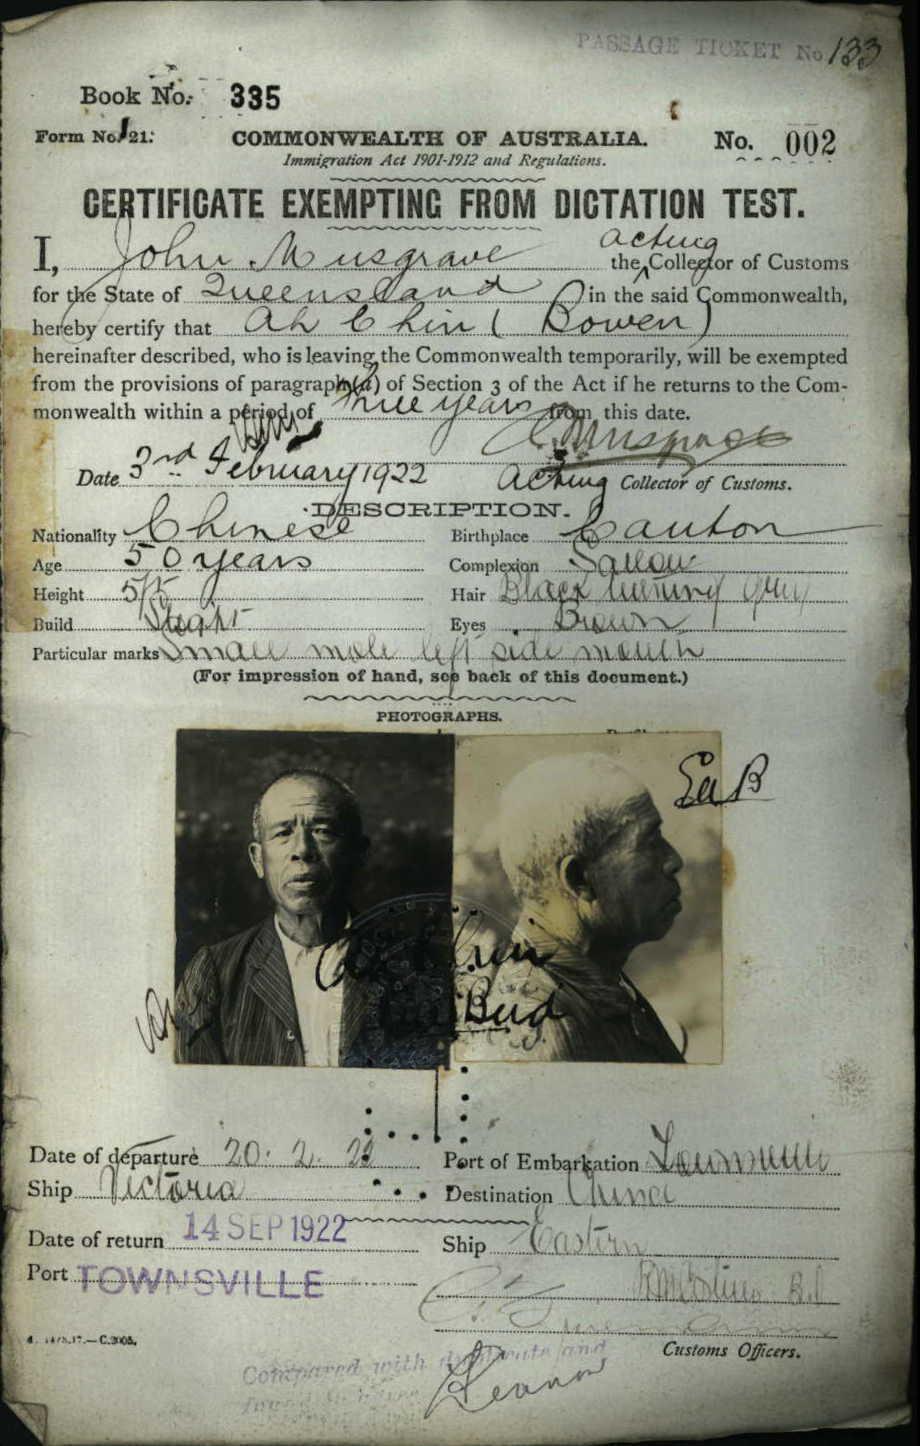 PASSAGE TICKET No 133
Book No. 335
Form No. 21. COMMONWEALTH OF AUSTRALIA. No. 002
Immigration Act 1901-1912 and Regulations.
CERTIFICATE EXEMPTING FROM DICTATION TEST.
I, John Musgrave acting the Collector of Customs
for the State of Queensland in the said Commonwealth,
hereby certify that Ah Chin (Bowen)
hereinafter described, who is leaving the Commonwealth temporarily, will be exempted
from the provisions of paragraph (a) of Section 3 of the Act if he returns to the Com-
monwealth within a period of Three years from this date.
Musgrave
Date 3rd February 1922 Acting Collector of Customs.
DESCRIPTION.
Nationality Chinese Birthplace Canton
Age 50 years Complexion Sallow
Height 5/5 Hair Black turning grey
Build Slight Eyes Brown
Particular marks Small mole left side mouth
(For impression of hand, see back of this document.)
PHOTOGRAPHS.
Ah Chin
Date of departure 20. 2. 22 Port of Embarkation Townsville
Ship Victoria Destination China
Date of return 14 SEP 1922 Ship Eastern
Port TOWNSVILLE
Customs Officers.
Compared with duplicate and